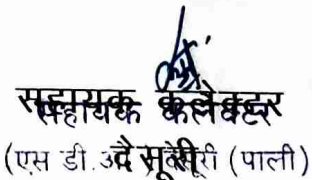 सहायक कलेक्टर
(एस डी. देसूरी (पाली)